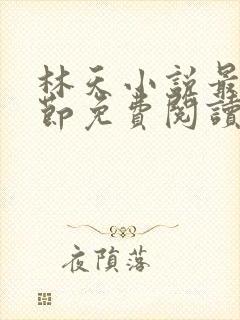 林天小説最
節免費閱讀
夜隕落